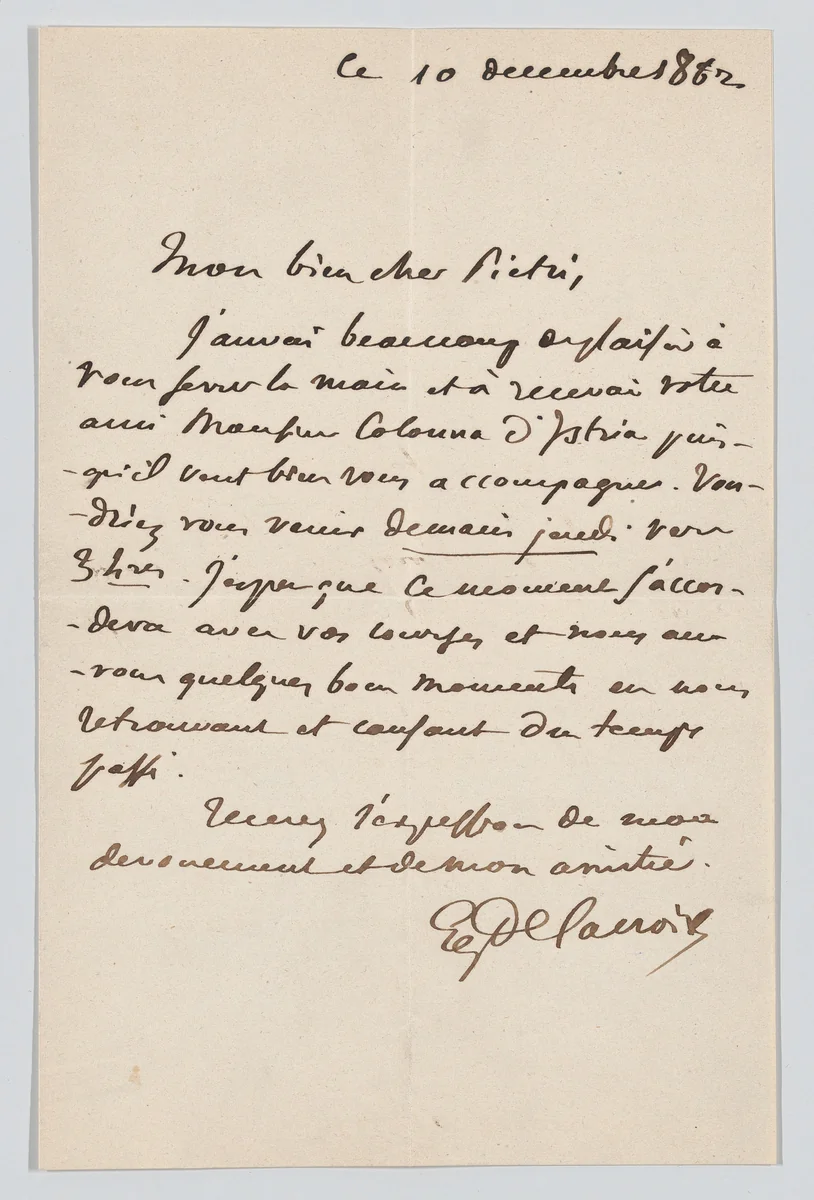 ce 10 decembre 1862
Mon bien cher Pietri,
J'aurai beaucoup de plaisir à
vous serrer la main et à recevoir votre
ami Monsieur Colonna d'Istria puis-
-qu'il veut bien vous accompagner. Vou-
-driez vous venir demain jeudi vers
3 hres. J'espère que ce moment s'accor-
-dera avec vos courses et nous au-
-rons quelques bons moments en nous
retrouvant et causant du temps
passé.
Recevez l'expression de mon
devouement et de mon amitié.
Eug Delacroix